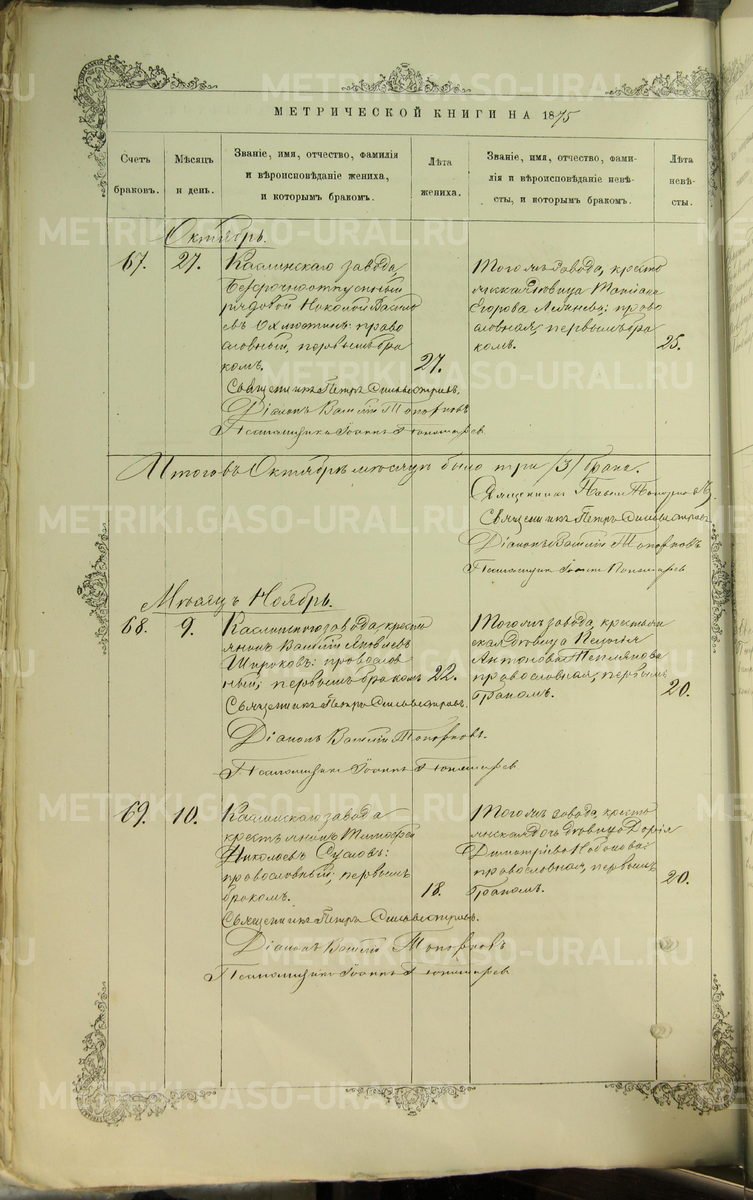 МЕТРИЧЕСКОЙ КНИГИ НА 1875
Счетъ браковъ.
Мѣсяцъ и день.
Званіе, имя, отчество, фамилія
и вѣроисповѣданіе жениха,
и которымъ бракомъ.
Лѣта жениха.
Званіе, имя, отчество, фами-
лія и вѣроисповѣданіе невѣ-
сты, и которымъ бракомъ.
Лѣта невѣ-
сты.
Октябрь.
67. 27. Каслинскаго завода,
Безсрочноотпускный
рядовой Николай Василь
евъ Охлюстинъ: право
славный, первымъ бра
комъ. 27.
Священникъ Петръ Сильвестровъ.
Діаконъ Василій Топорковъ
Псаломщикъ Іоаннъ Пономаревъ
Тогожъ завода, кресть
янская дѣвица
Егорова православная, первымъ бра
комъ. 25.
Итого въ Октябрѣ мѣсяцѣ было три /3/ брака.
Священникъ Павелъ
Священникъ Петръ Сильвестровъ
Діаконъ Василій Топорковъ
Псаломщикъ Іоаннъ Пономаревъ
Мѣсяцъ Ноябрь.
68. 9. Каслинскаго завода кресть
янинъ Василій Яковлевъ
Широковъ: православ
ный, первымъ бракомъ 22.
Священникъ Петръ Сильвестровъ.
Діаконъ Василій Топорковъ.
Псаломщикъ Іоаннъ Пономаревъ
Тогожъ завода, крестьян
ская дѣвица Ксенія
Антонова Теплякова
православная, первымъ
бракомъ. 20.
69. 10. Каслинскаго завода
крестьянинъ Тимофей
Николаевъ Сусловъ:
православный, первымъ
бракомъ. 18.
Священникъ Петръ Сильвестровъ.
Діаконъ Василій Топорковъ
Псаломщикъ Іоаннъ Пономаревъ
Тогожъ завода, кресть
янская дочь дѣвица Дарія
Дмитріева
православная, первымъ
бракомъ. 20.
METRIKI.GASO-URAL.RU